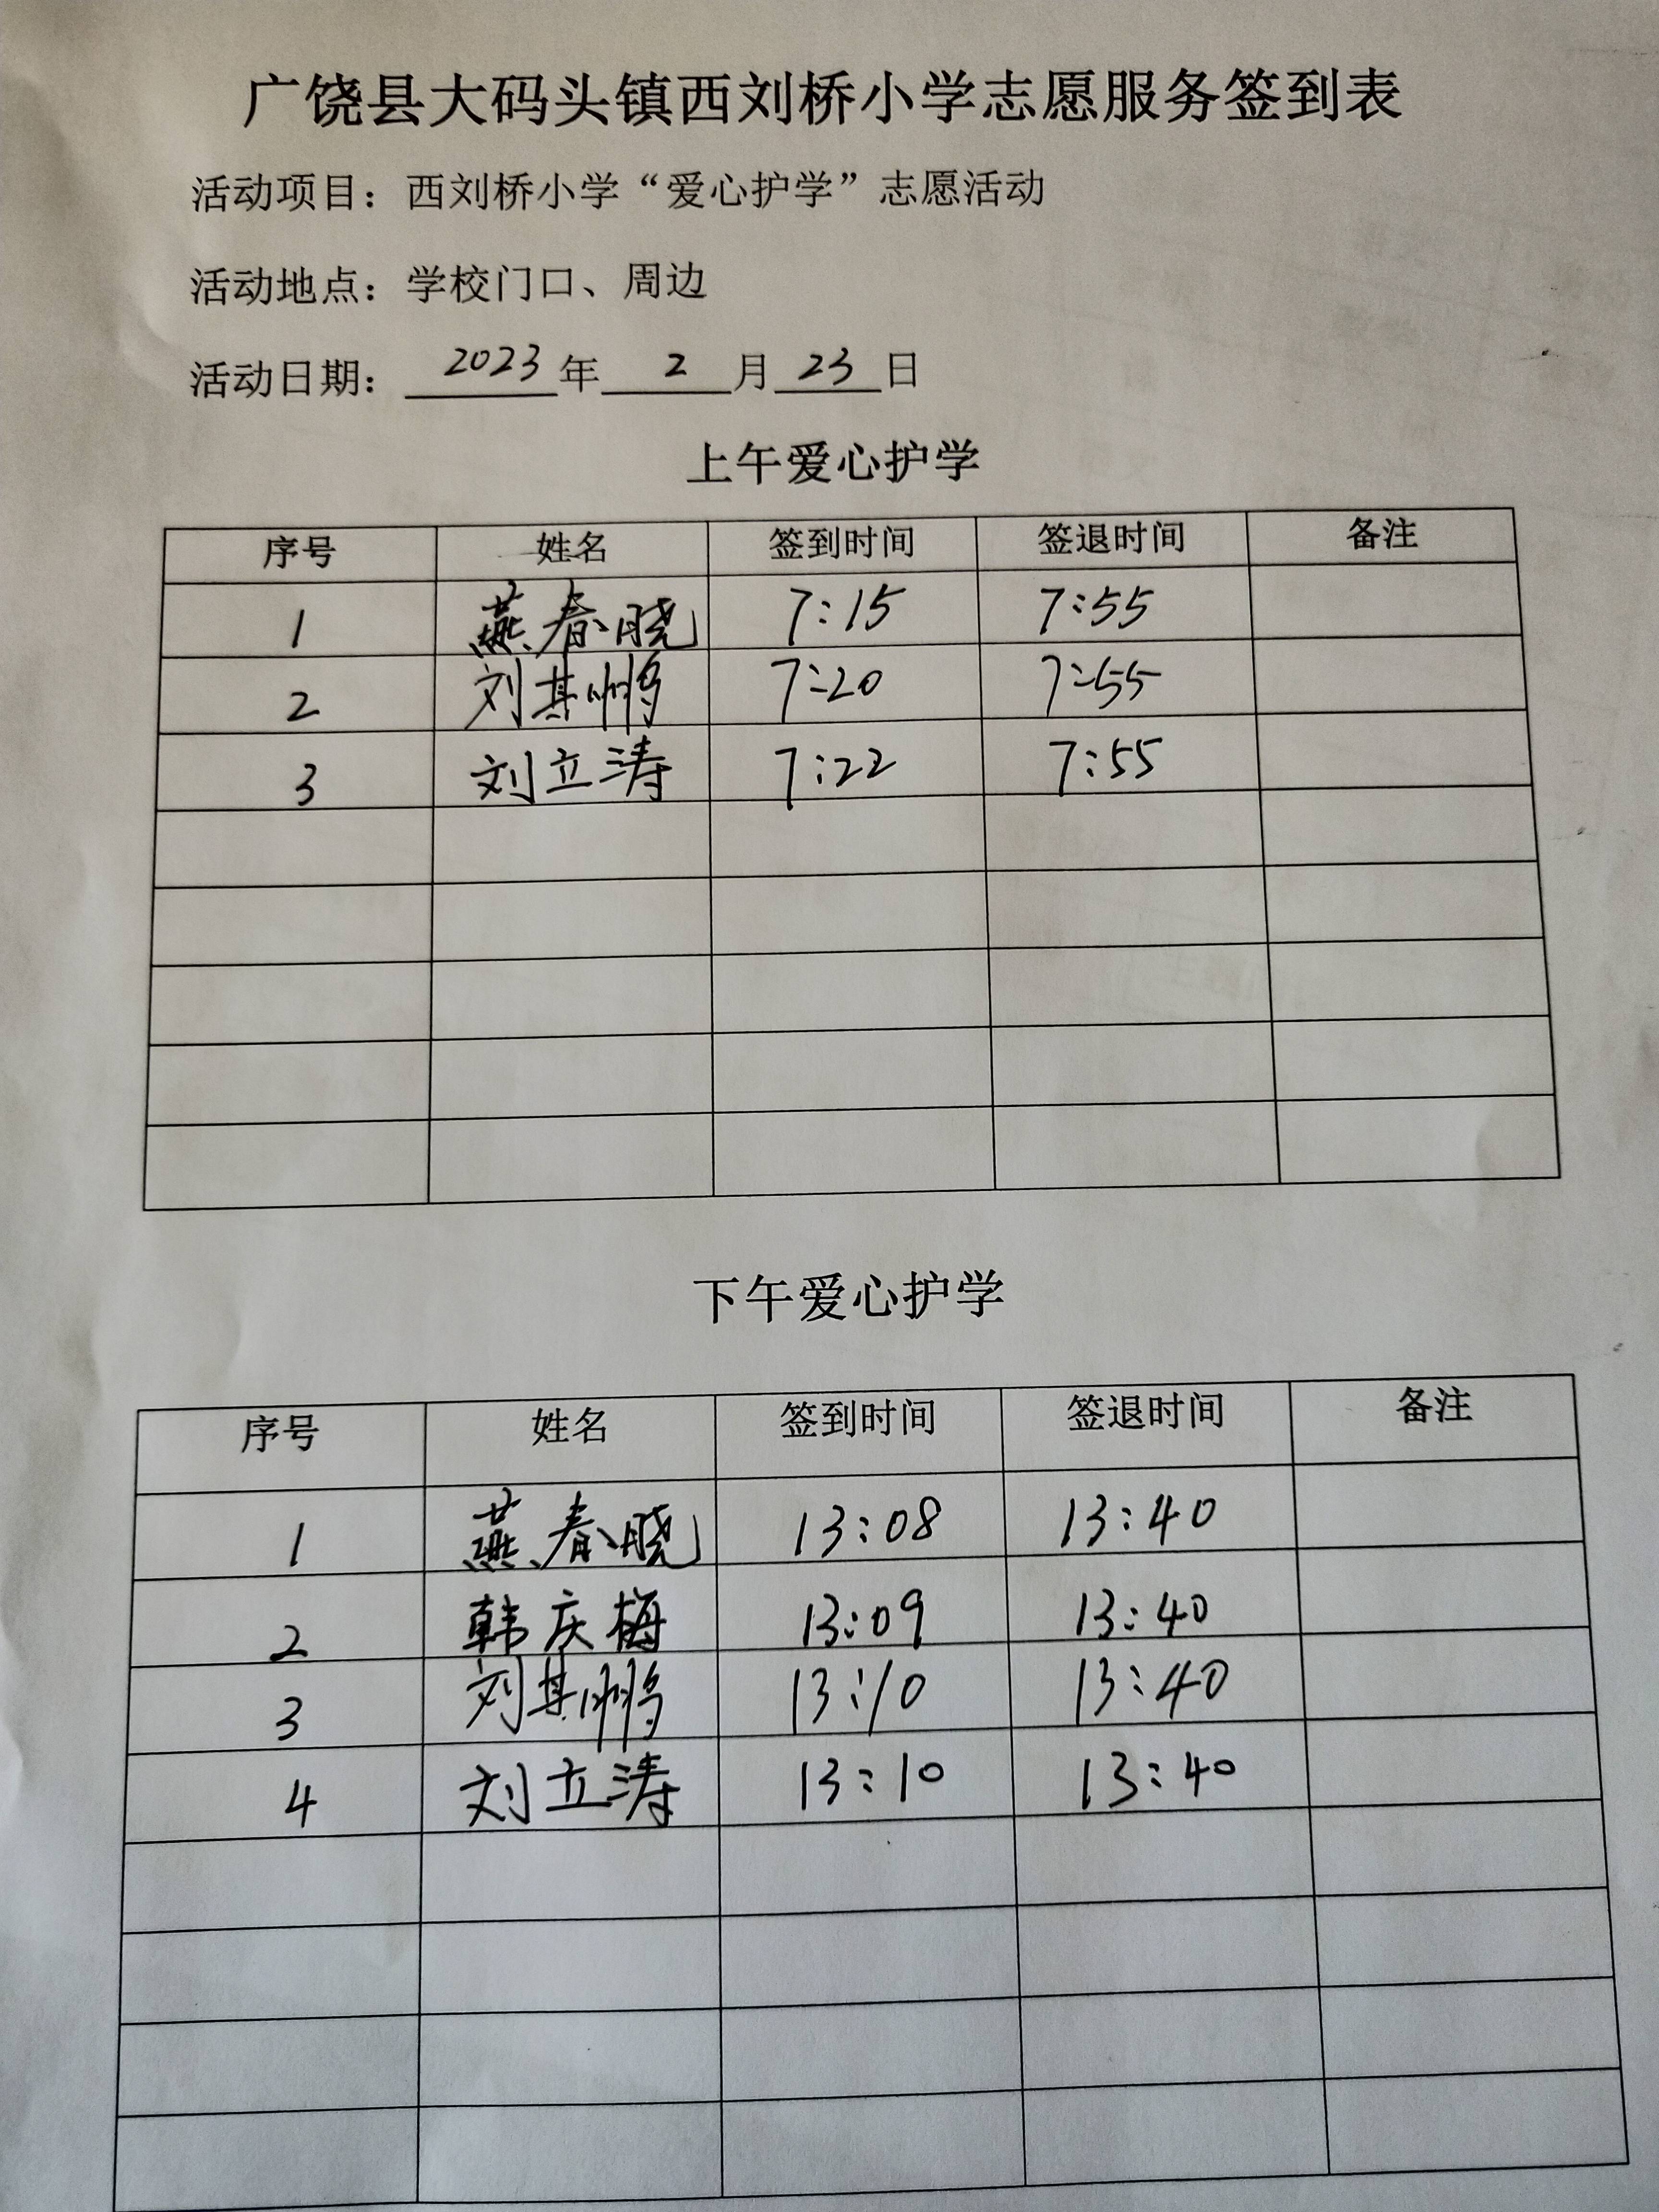 广饶县大码头镇西刘桥小学志愿服务签到表
活动项目：西刘桥小学“爱心护学”志愿活动
活动地点：学校门口、周边
活动日期：2023年2月23日
上午爱心护学
序号 姓名 签到时间 签退时间 备注
1 燕春晓 7:15 7:55
2 刘其鹏 7:20 7:55
3 刘立涛 7:22 7:55
下午爱心护学
序号 姓名 签到时间 签退时间 备注
1 燕春晓 13:08 13:40
2 韩庆梅 13:09 13:40
3 刘其鹏 13:10 13:40
4 刘立涛 13:10 13:40